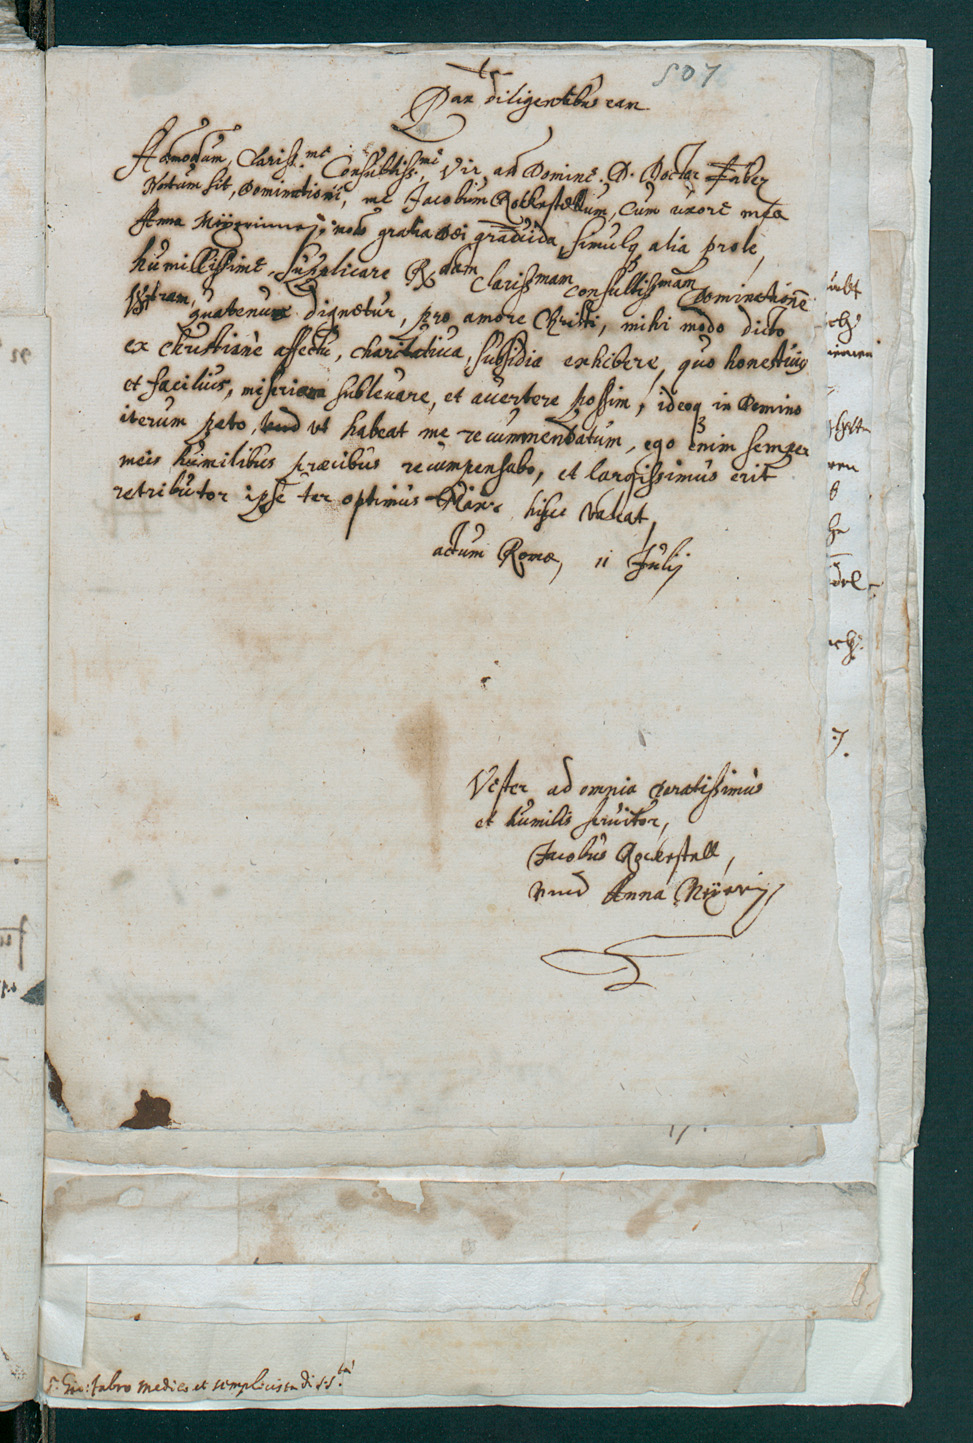 507
Pax diligentibus eam
Admodum, Clariss.me Consultiss.me, Vir, ac Domine. D. Doctor Faber
Notum sit, Dominationi, me Jacobum Rockestallum, cum uxore mea
Anna modo gratia Dei gravida, simulq alia prole,
humillissime, supplicare R dam Clarissmam consultissmam Dominatione
Vestram, quatenus dignetur, pro amore Christi, mihi modo dicto
ex christiane affectu, charitativa, subsidia exhibere, quo honestius
et facilius, miseriam sublevare, et avertere possim, ideoq in Domino
iterum peto, ut habeat me recummendatum, ego enim semper
meis humilibus præcibus recumpensabo, et largissimus erit
retributor ipse ter optimus hisce valeat,
actum Romæ, 11 Julij
Vester ad omnia paratissimus
et humilis servitor,
Jacobus Rockestall,
unnd Anna
17.
S. Gio: fabro medico et semplicista di S.S.tà